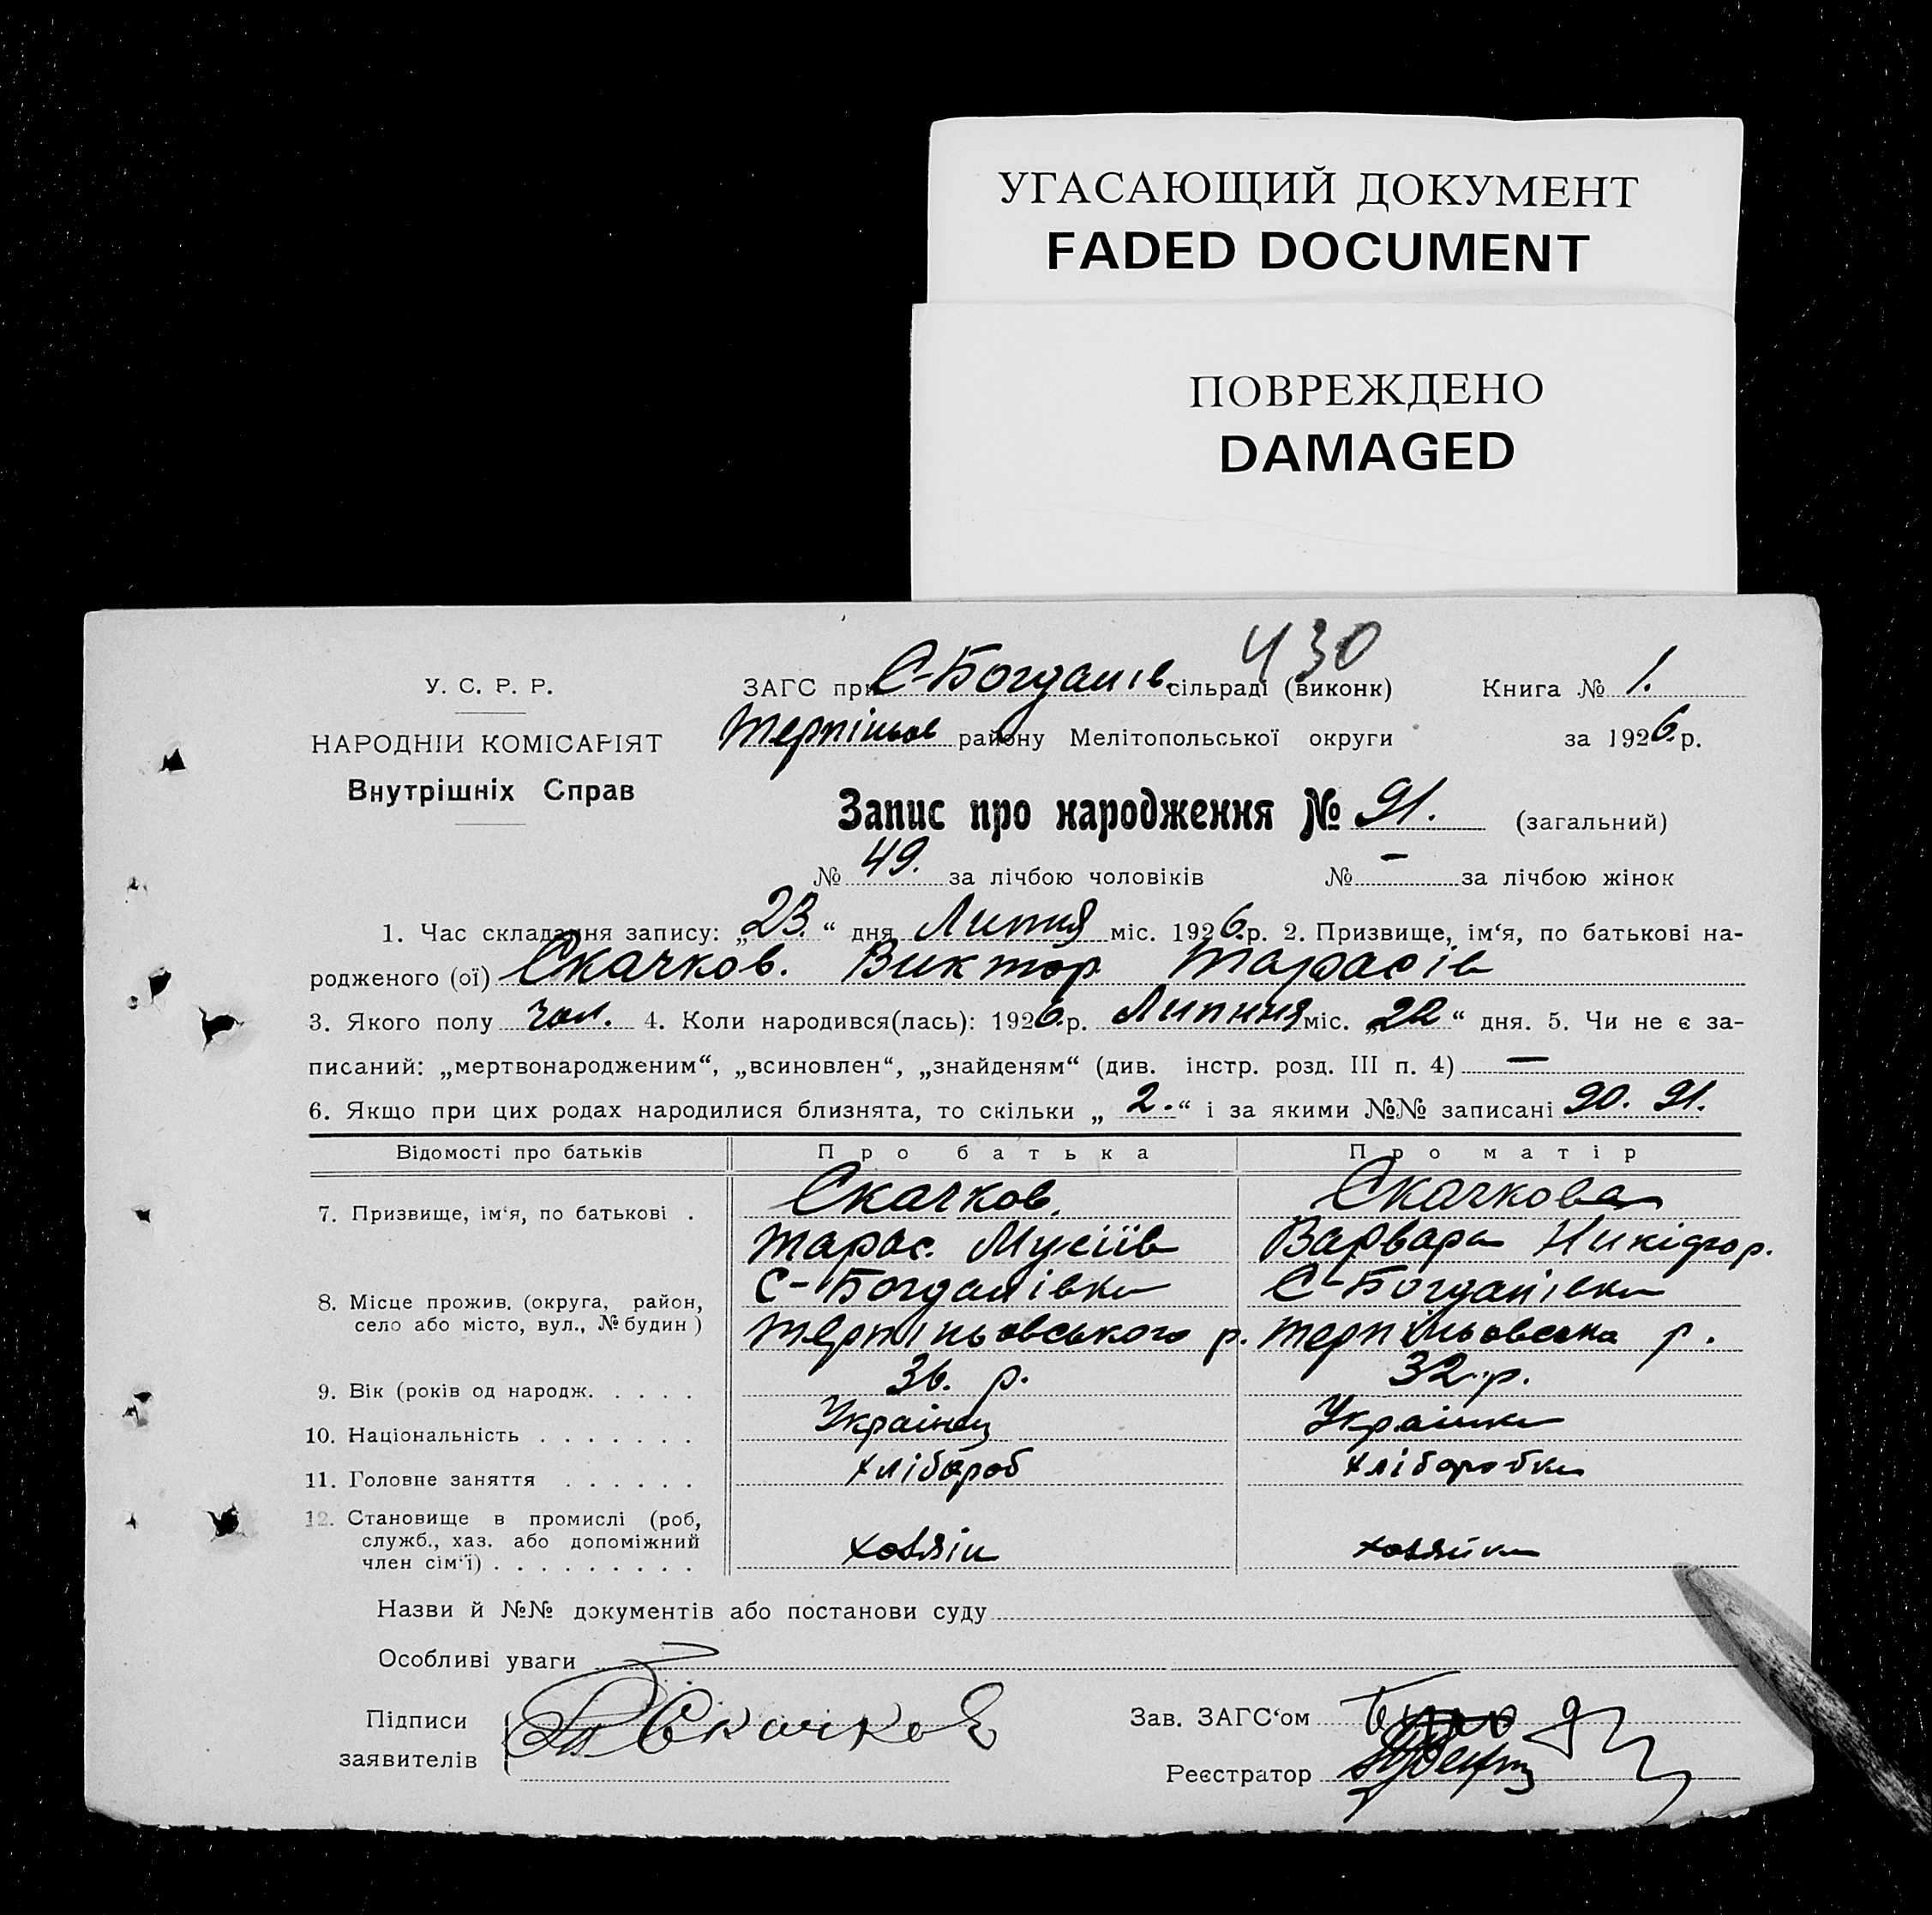 УГАСАЮЩИЙ ДОКУМЕНТ
FADED DOCUMENT
ПОВРЕЖДЕНО
DAMAGED
430
У. С. Р. Р.
НАРОДНІЙ КОМІСАРІЯТ
Внутрішніх Справ
ЗАГС при С-Богданів сільраді (виконк) Книга № 1.
Терпіньов району Мелітопольської округи за 1926 р.
Запис про народження № 91. (загальний)
№ 49. за лічбою чоловіків № — за лічбою жінок
1. Час складання запису: „23.“ дня Липня міс. 1926.р. 2. Призвище, ім‘я, по батькові на-
родженого (ої) Скачков. Виктор Тарасів
3. Якого полу чол. 4. Коли народився(лась): 1926.р. Липння міс. „22“ дня. 5. Чи не є за-
писаний: „мертвонародженим“, „всиновлен“, „знайденям“ (див. інстр. розд. III п. 4) —
6. Якщо при цих родах народилися близнята, то скільки „2.“ і за якими №№ записані 90. 91.
Відомості про батьків Про батька Про матір
7. Призвище, ім‘я, по батькові . Скачков. Скачкова
Тарас. Мусіїв Варвара Никіфор.
8. Місце прожив. (округа, район, С-Богданівка С-Богданівка
село або місто, вул., № будин) Терпіньовського р. Терпіньовська р.
9. Вік (років од народж. . . . . 36. р. 32.р.
10. Національність . . . . . . . Українец Українка
11. Головне заняття . . . . . . хлібороб хліборобка
12. Становище в промислі (роб,
служб., хаз. або допоміжний
член сім‘ї) . . . . . . . . . хозяін хозяйка
Назви й №№ документів або постанови суду
Особливі уваги
Підписи
заявителів
Скачков
Зав. ЗАГС‘ом
Реєстратор